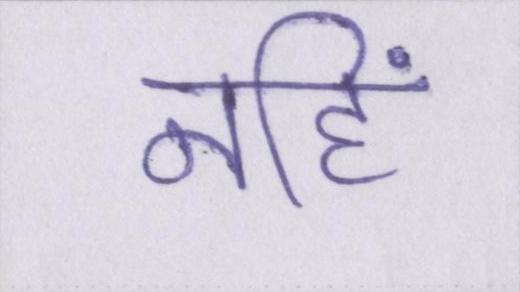 नहिं